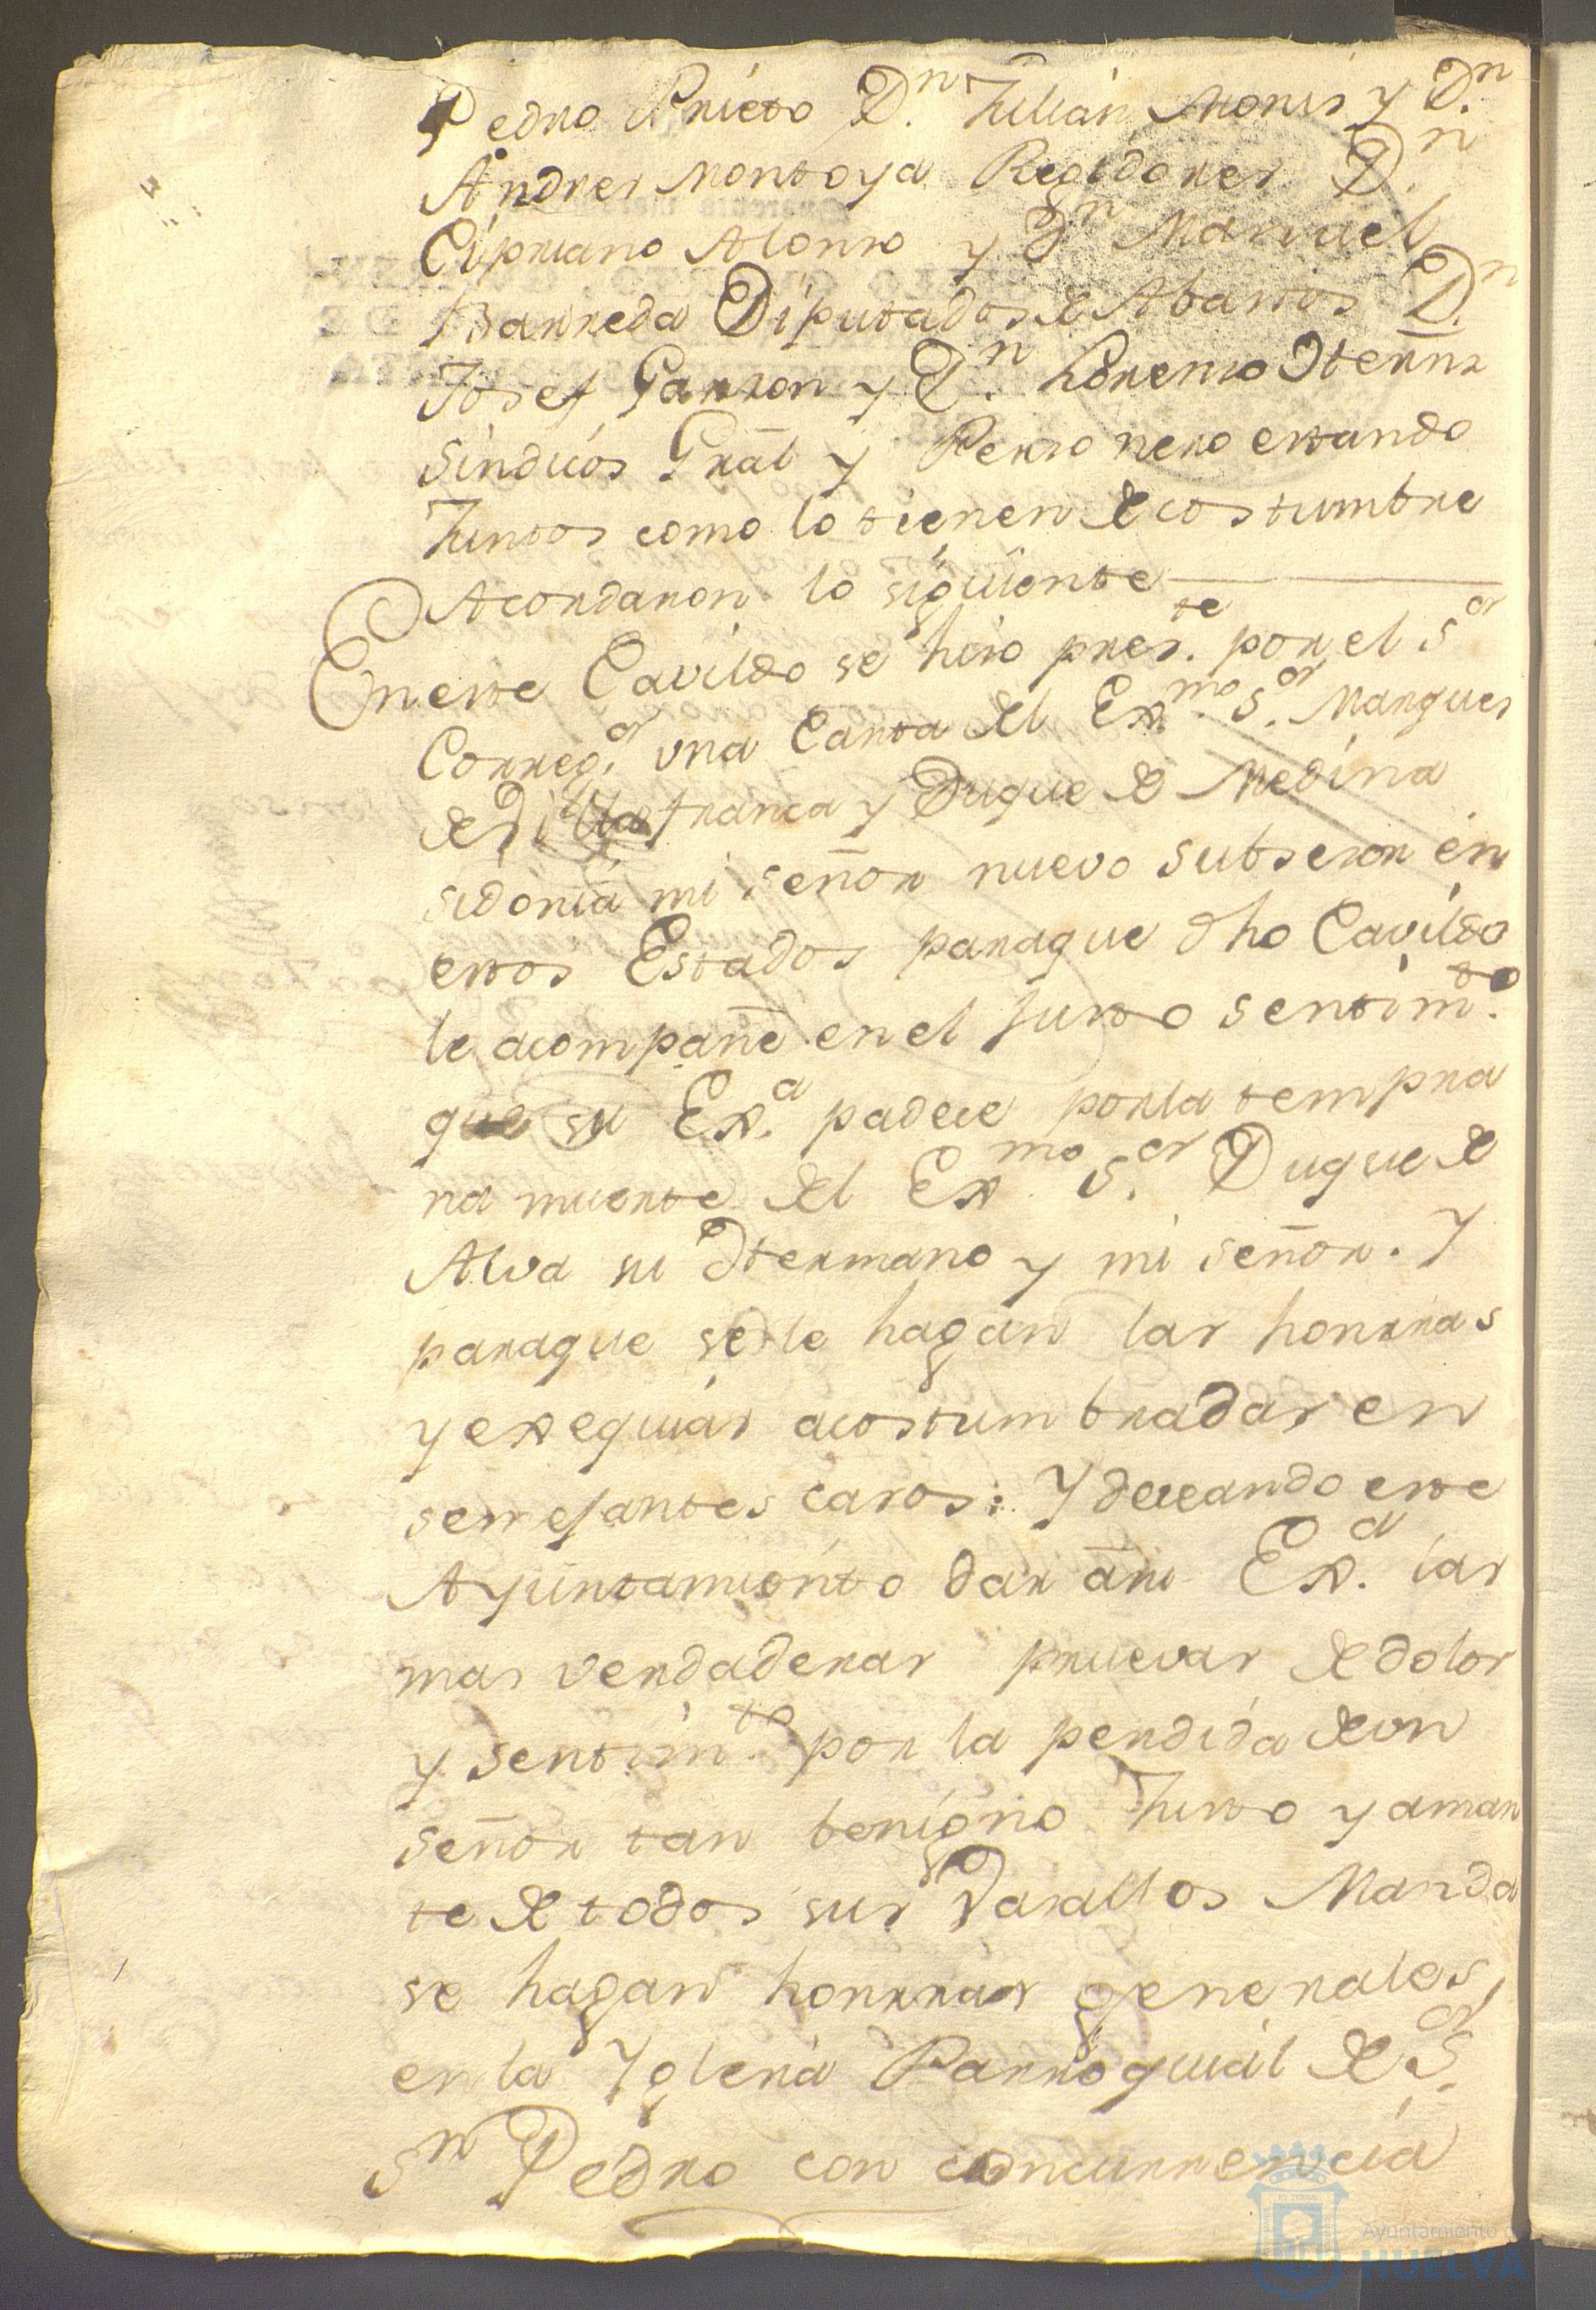 Pedro Prieto D.n Julian Monis y D.n
Andres Montoya Regidores D.n
Cipriano Alonso y D.n Manuel
Barreda Diputados de Abastos D.n
Josef Garzon y D.n Lorenzo Hernz
Sindicos Gral y Personero estando
Juntos como lo tienen de costumbre
Acordaron lo siguiente
En este Cavildo se hizo pres.te por el S.or
Correg.or una Carta del Ex.mo S.or Marques
de Villafranca y Duque de Medina
sidonia mi señor nuevo subsesor en
estos Estados paraque dho Cavildo
le acompañe en el Justo sentim.to
que su Ex.a padece por la tempra
na muerte del Ex.mo S.or Duque de
Alva su Hermano y mi señor. Y
paraque se le hagan las honrras
y exequias acostumbradas en
semejantes casos: Y deceando este
Ayuntamiento dar a su Ex.a las
mas verdaderas pruevas de dolor
y sentim.to por la perdida de un
señor tan benigno Justo y aman
te de todos sus Vasallos Manda
se hagan honrras generales
en la Yglesia Parroquial de S.or
S.n Pedro con concurrencia
Ayuntamiento de
HUELVA